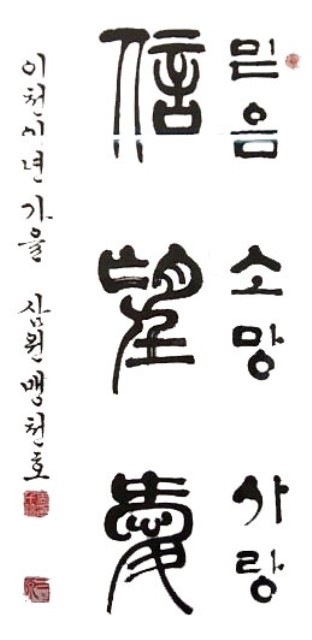 믿음 소망 사랑
信望愛
이천사년 가을 삼원 맹천호